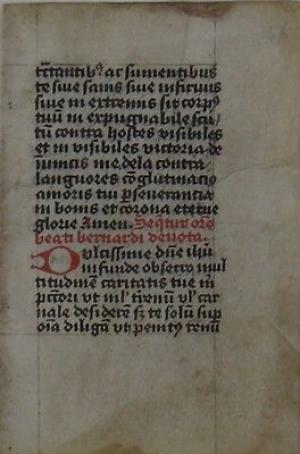 tractantibꝰ ac sumentibus
te siue sanis siue infirmis
siue in extremis sit corpꝰ
tuū in expugnabile scu
tū contra hostes visibiles
et in visibiles victoria de
me dela contra
languores cōglutinacio
amoris tui ꝑseuerantia
in bonis et corona eterne
glorie Amen. Seqtur oro
beati bernardi deuota.
Dulcissime dn̄e ihū
infunde obsecro mul
titudinem caritatis tue in
pctori vt nil' trenū vl' car
nale desiderē sꝫ te solū suꝑ
oīa diligā vt penitꝰ renū